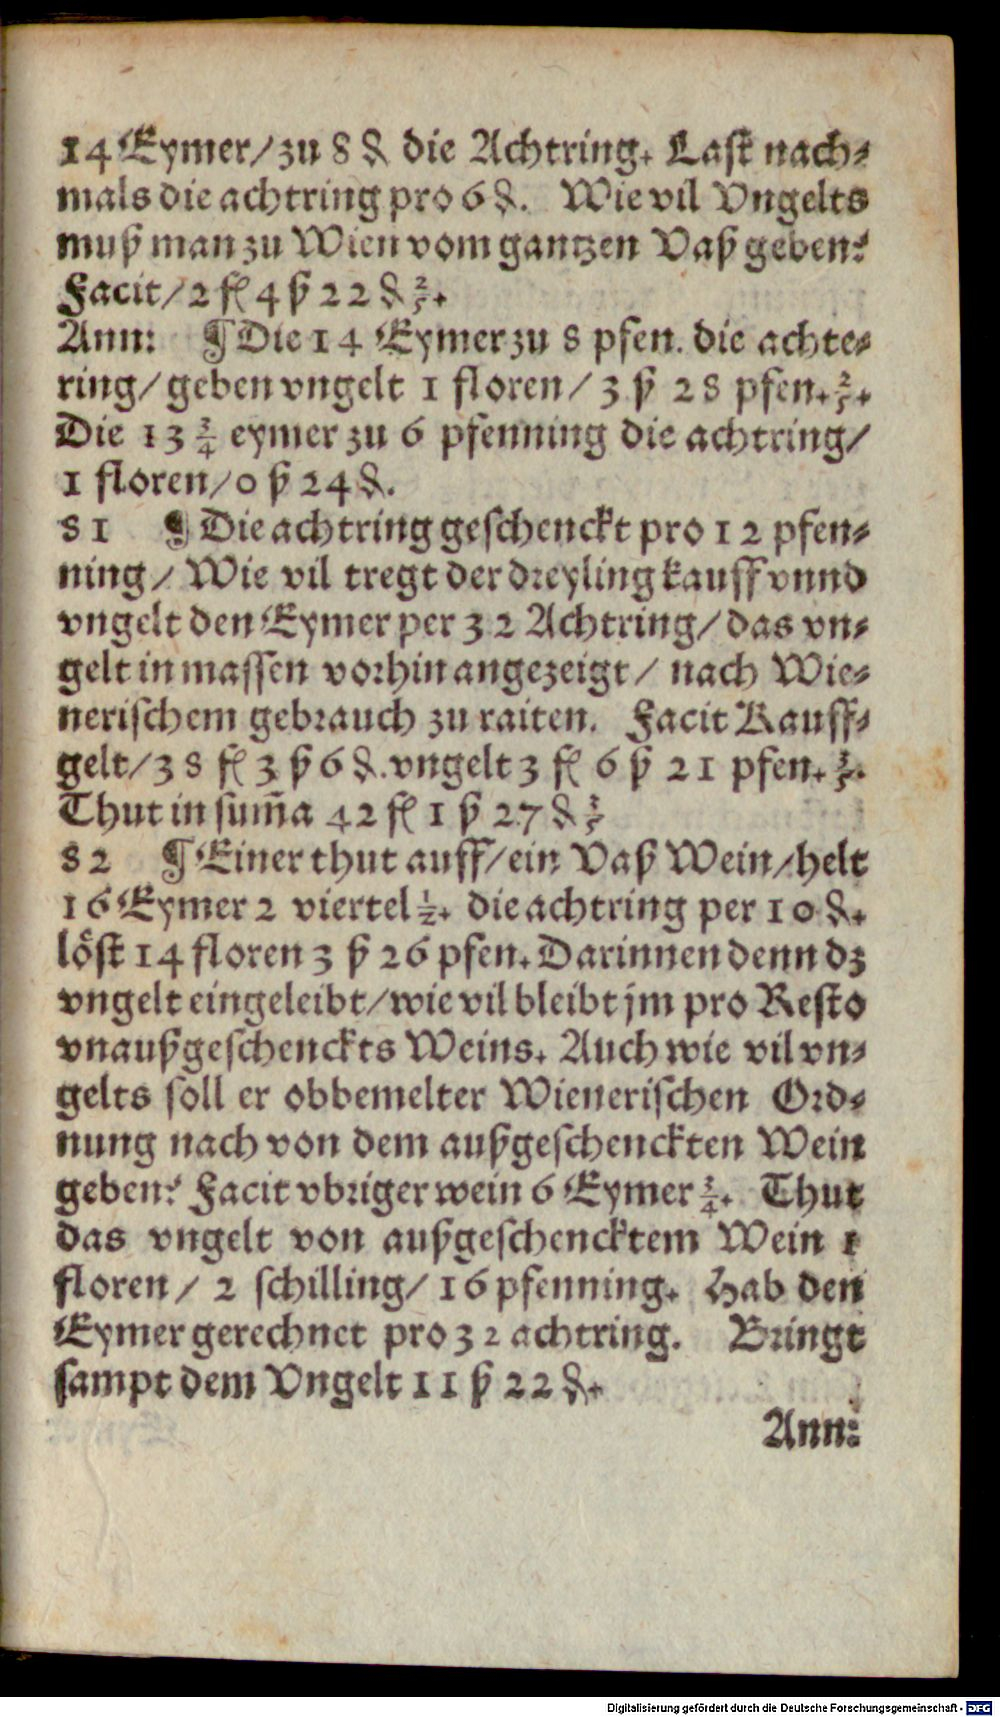 14 Eymer/ zu 8 ₰ die Achtring. Last nach⸗
mals die achtring pro 6 ₰. Wie vil Vngelts
muß man zu Wien vom gantzen Vaß geben?
Facit/ 2 fl 4 ß 22 ₰ 2/5.
Ann: ¶ Die 14 Eymer zu 8 pfen. die achte⸗
ring/ geben vngelt 1 floren/ 3 ß 28 pfen. 2/5.
Die 13 3/4 eymer zu 6 pfenning die achtring/
1 floren/ 0 ß 24 ₰.
81 ¶ Die achtring geschenckt pro 12 pfen⸗
ning/ Wie vil tregt der dreyling kauff vnnd
vngelt den Eymer per 32 Achtring/ das vn⸗
gelt in massen vorhin angezeigt/ nach Wie⸗
nerischem gebrauch zu raiten. Facit Kauff⸗
gelt/ 38 fl 3 ß 6 ₰. vngelt 3 fl 6 ß 21 pfen. 3/5.
Thut in sum̃a 42 fl 1 ß 27 ₰ 3/5
82 ¶ Einer thut auff/ ein Vaß Wein/ helt
16 Eymer 2 viertel 1/2. die achtring per 10 ₰.
löst 14 floren 3 ß 26 pfen. Darinnen denn dz
vngelt eingeleibt/ wie vil bleibt jm pro Resto
vnaußgeschenckts Weins. Auch wie vil vn⸗
gelts soll er obbemelter Wienerischen Ord⸗
nung nach von dem außgeschenckten Wein
geben? Facit vbriger wein 6 Eymer 3/4. Thut
das vngelt von außgeschencktem Wein 1
floren/ 2 schilling/ 16 pfenning. Hab den
Eymer gerechnet pro 32 achtring. Bringt
sampt dem Vngelt 11 ß 22 ₰.
Ann:
Digitalisierung gefördert durch die Deutsche Forschungsgemeinschaft - DFG